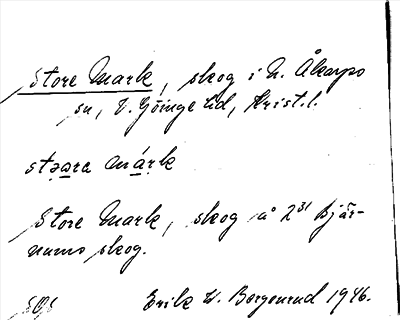 Store Mark, skog i N. Åkarps
sn, V. Göinge hd, Krist. l.
stǝara márk
Store Mark, skog å 2³¹ Bjär-
nums skog.
Erik W. Bergenrud 1946.